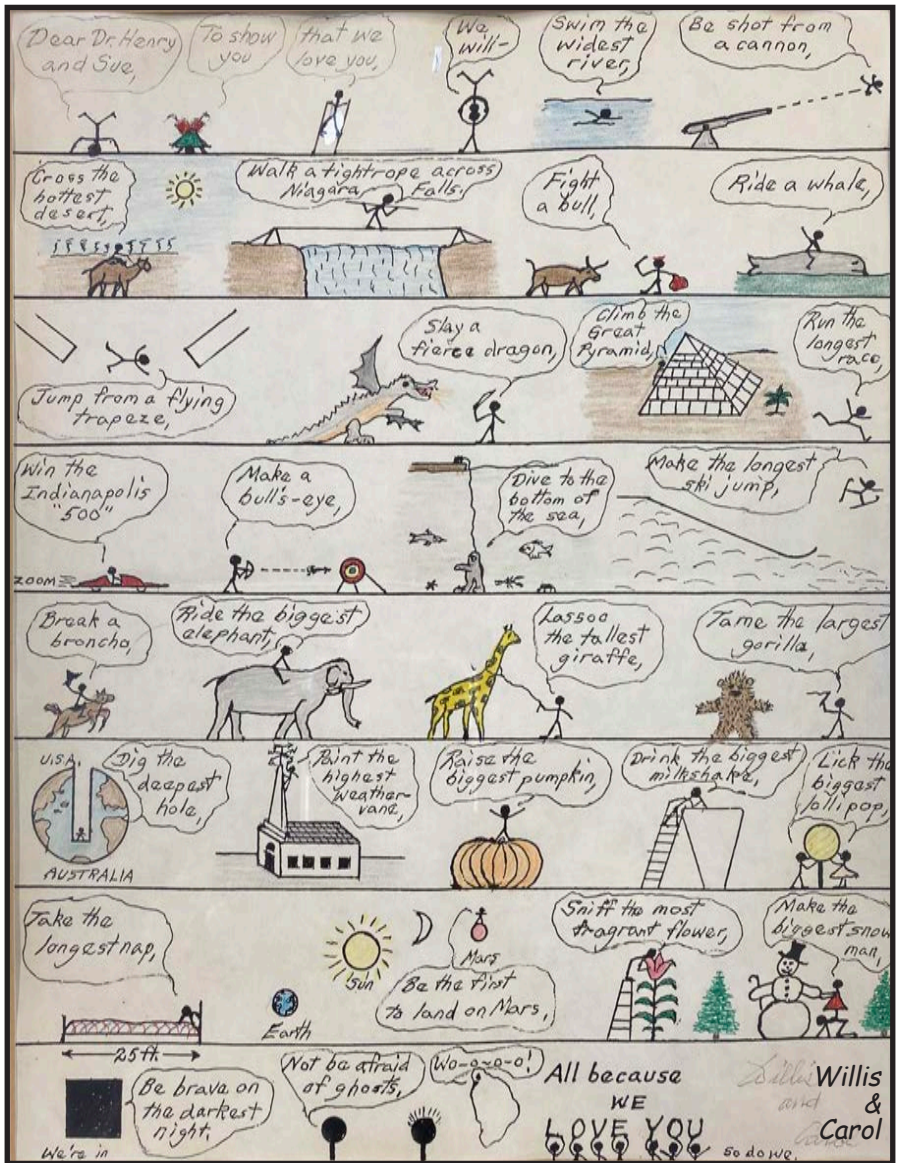 Dear Dr. Henry
and Sue,
To show
you
that we
love you,
We
will-
Swim the
widest
river,
Be shot from
a cannon,
Cross the
hottest
desert,
Walk a tightrope across
Niagara Falls,
Fight
a bull,
Ride a whale,
Jump from a flying
trapeze,
Slay a
fierce dragon,
Climb the
Great
Pyramid,
Run the
longest
race,
Win the
Indianapolis
"500"
ZOOM
Make a
bull's-eye,
Dive to the
bottom of
the sea,
Make the longest
ski jump,
Break a
broncho,
Ride the biggest
elephant,
Lassoo
the tallest
giraffe,
Tame the largest
gorilla,
U.S.A.
AUSTRALIA
Dig the
deepest
hole,
Paint the
highest
weather-
vane,
Raise the
biggest pumpkin,
Drink the biggest
milkshake,
Lick the
biggest
lollipop,
Take the
longest nap,
25 ft.
Earth
Sun
Mars
Be the first
to land on Mars,
Sniff the most
fragrant flower,
Make the
biggest snow
man,
We're in
Be brave on
the darkest
night,
Not be afraid
of ghosts,
Wo-o-o-o!
All because
WE
LOVE YOU
So do we.
Willis
and
Carol
Willis
&
Carol